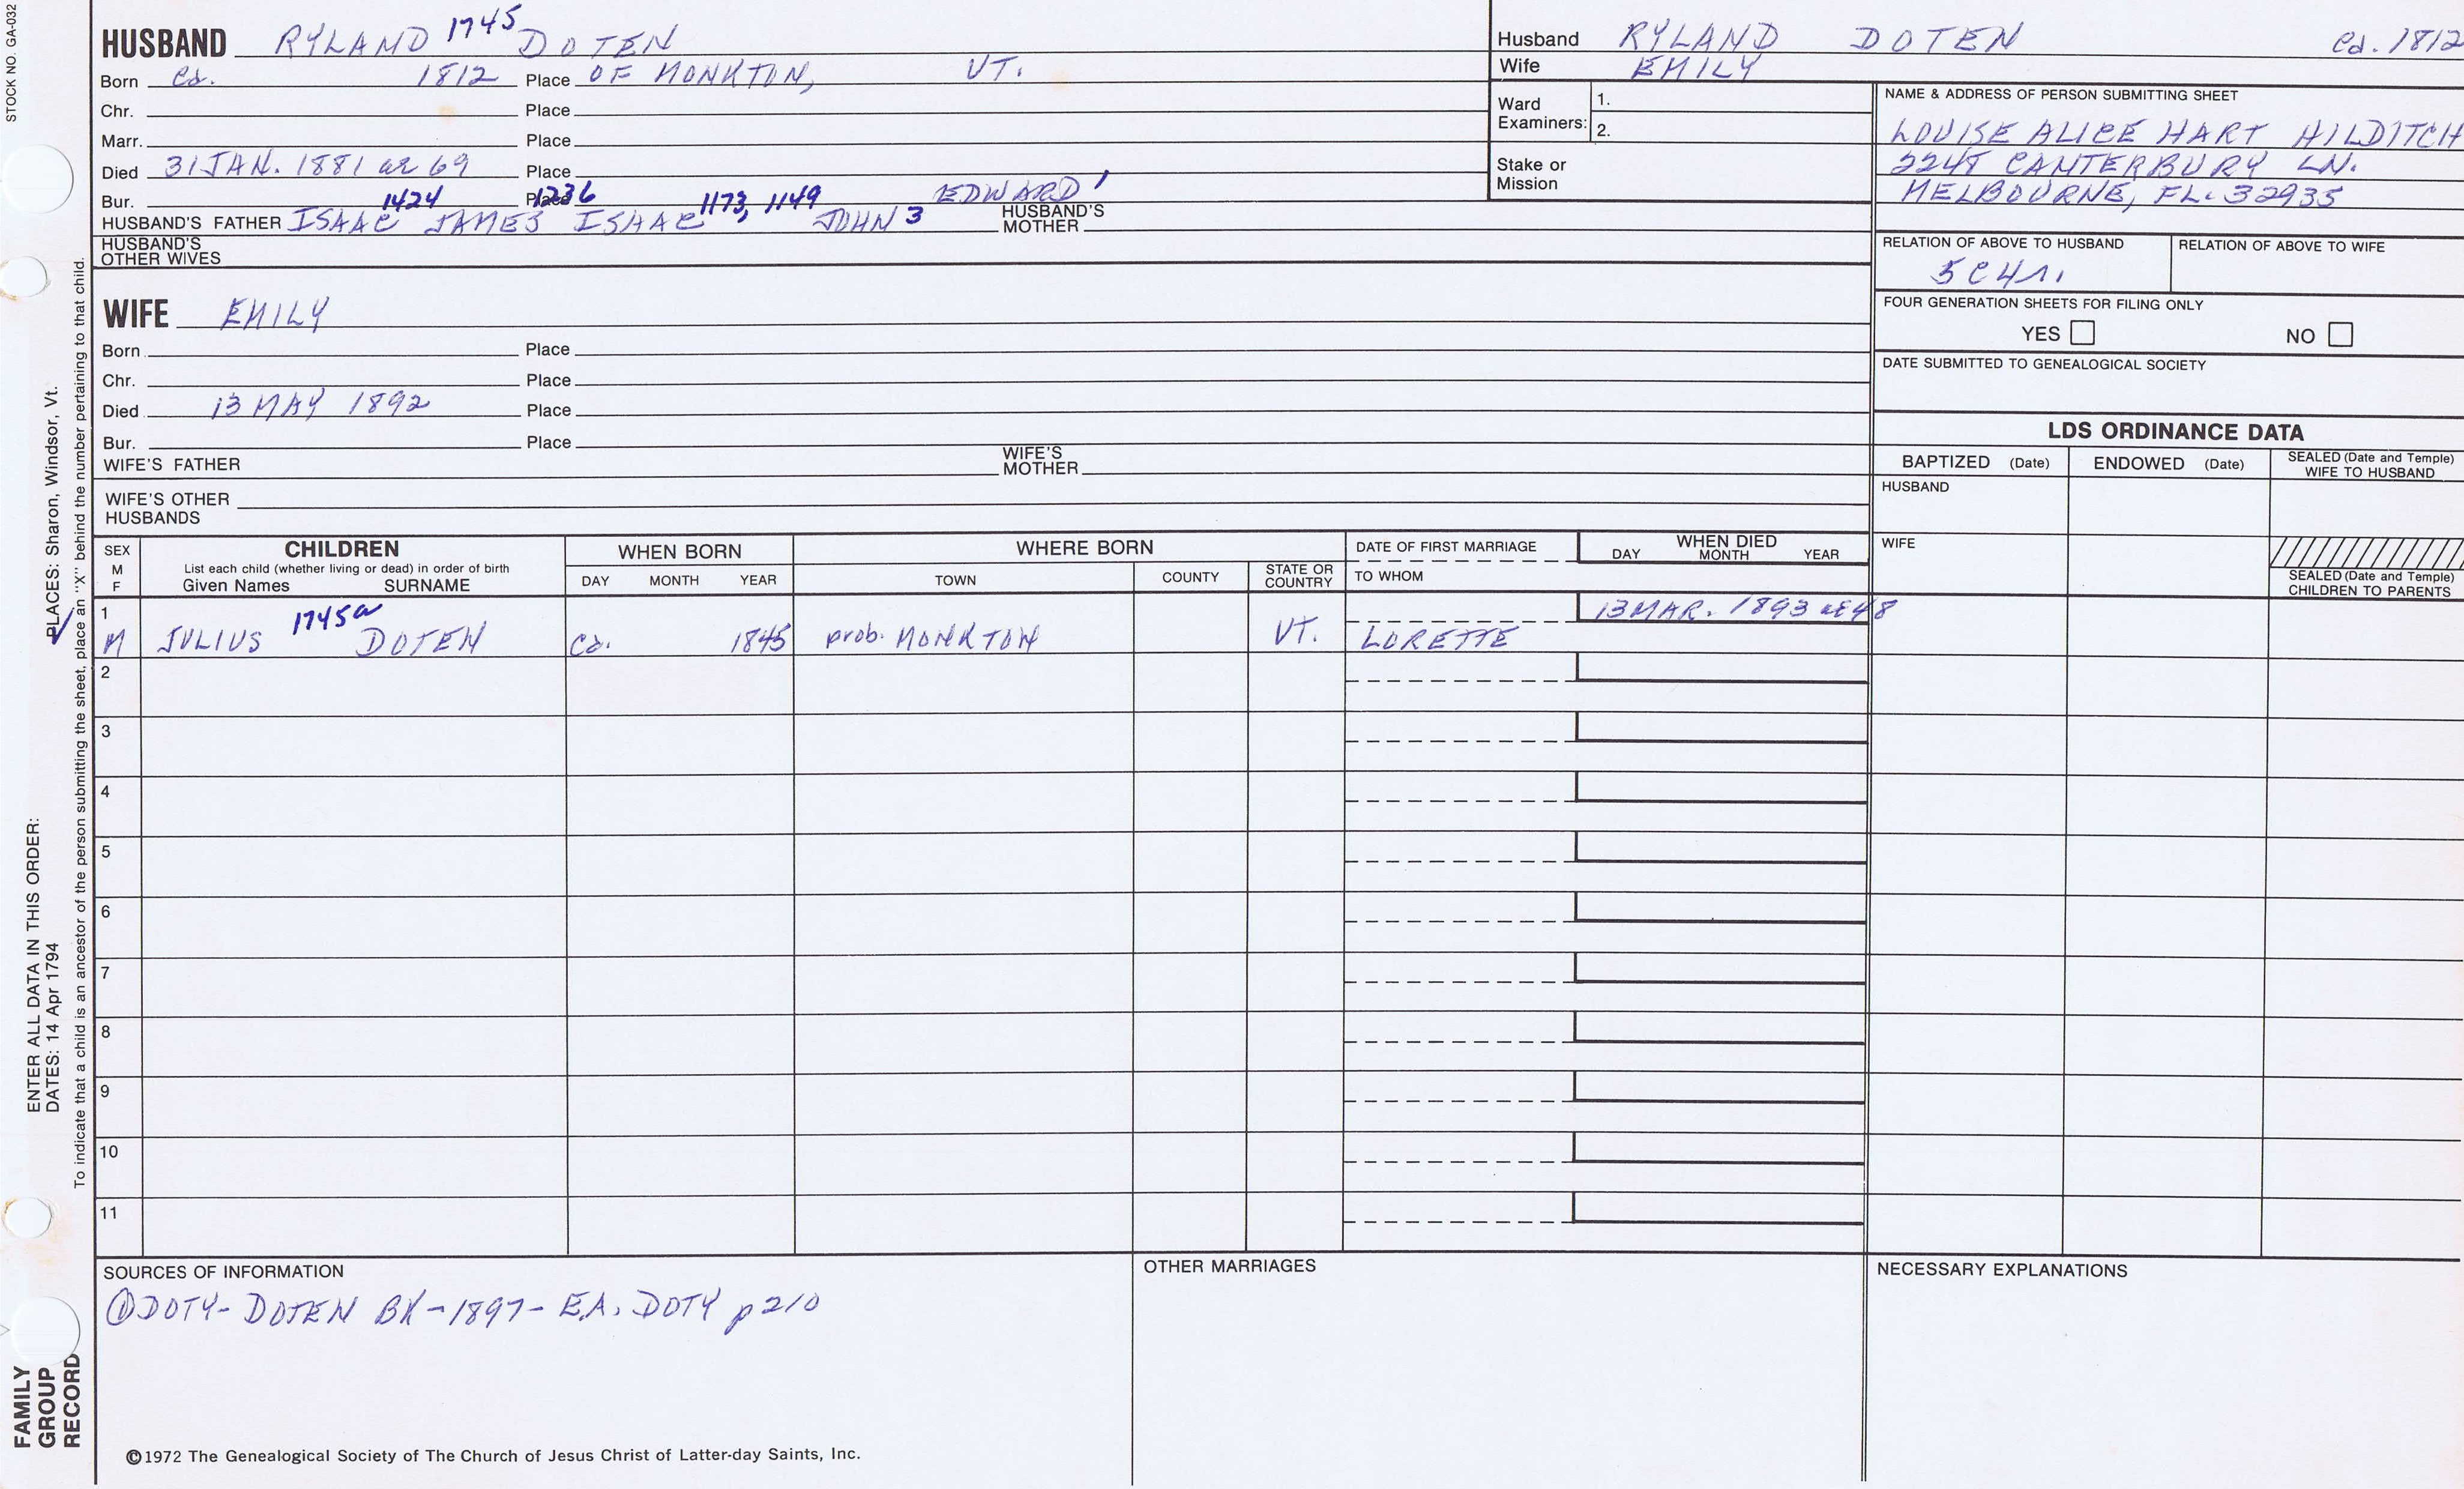 STOCK NO. GA-032
HUSBAND RYLAND 1745 DOTEN
Born ca. 1812 Place OF MONKTON, VT.
Chr. Place
Marr. Place
Died 31 JAN. 1881 ae 69 Place
Bur. 1424 Place 1236 1173, 1149 EDWARD 1
HUSBAND'S FATHER ISAAC JAMES ISAAC JOHN 3 HUSBAND'S MOTHER
HUSBAND'S OTHER WIVES
WIFE EMILY
Born Place
Chr. Place
Died 13 MAY 1892 Place
Bur. Place
WIFE'S FATHER WIFE'S MOTHER
WIFE'S OTHER HUSBANDS
Husband RYLAND DOTEN ca. 1812
Wife EMILY
Ward Examiners: 1.
2.
Stake or Mission
NAME & ADDRESS OF PERSON SUBMITTING SHEET
LOUISE ALICE HART HILDITCH
CANTERBURY LN.
MELBOURNE, FL. 32935
RELATION OF ABOVE TO HUSBAND RELATION OF ABOVE TO WIFE
5C4r.
FOUR GENERATION SHEETS FOR FILING ONLY
YES NO
DATE SUBMITTED TO GENEALOGICAL SOCIETY
LDS ORDINANCE DATA
BAPTIZED (Date) ENDOWED (Date) SEALED (Date and Temple) WIFE TO HUSBAND
HUSBAND
WIFE
SEALED (Date and Temple) CHILDREN TO PARENTS
SEX M F
CHILDREN
List each child (whether living or dead) in order of birth
Given Names SURNAME
WHEN BORN
DAY MONTH YEAR
WHERE BORN
TOWN COUNTY STATE OR COUNTRY
DATE OF FIRST MARRIAGE
TO WHOM
WHEN DIED
DAY MONTH YEAR
1 1745a 13 MAR. 1893 ae 48
M JULIUS DOTEN ca. 1845 prob. MONKTON VT. LORETTE
2
3
4
5
6
7
8
9
10
11
SOURCES OF INFORMATION
① DOTY-DOTEN BK-1897-E.A. DOTY p210
OTHER MARRIAGES
NECESSARY EXPLANATIONS
©1972 The Genealogical Society of The Church of Jesus Christ of Latter-day Saints, Inc.
FAMILY
GROUP
RECORD
ENTER ALL DATA IN THIS ORDER:
DATES: 14 Apr 1794
✓ PLACES: Sharon, Windsor, Vt.
To indicate that a child is an ancestor of the person submitting the sheet, place an "X" behind the number pertaining to that child.